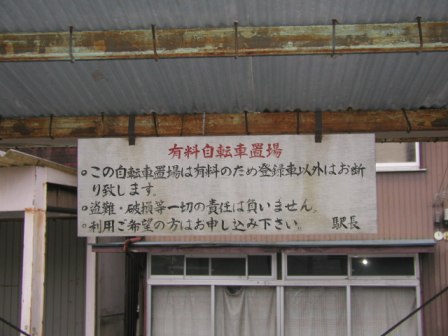 有料自転車置場
○この自転車置場は有料のため登録車以外はお断
り致します。
○盗難・破損等一切の責任は負いません。
○利用ご希望の方はお申し込み下さい。 駅長